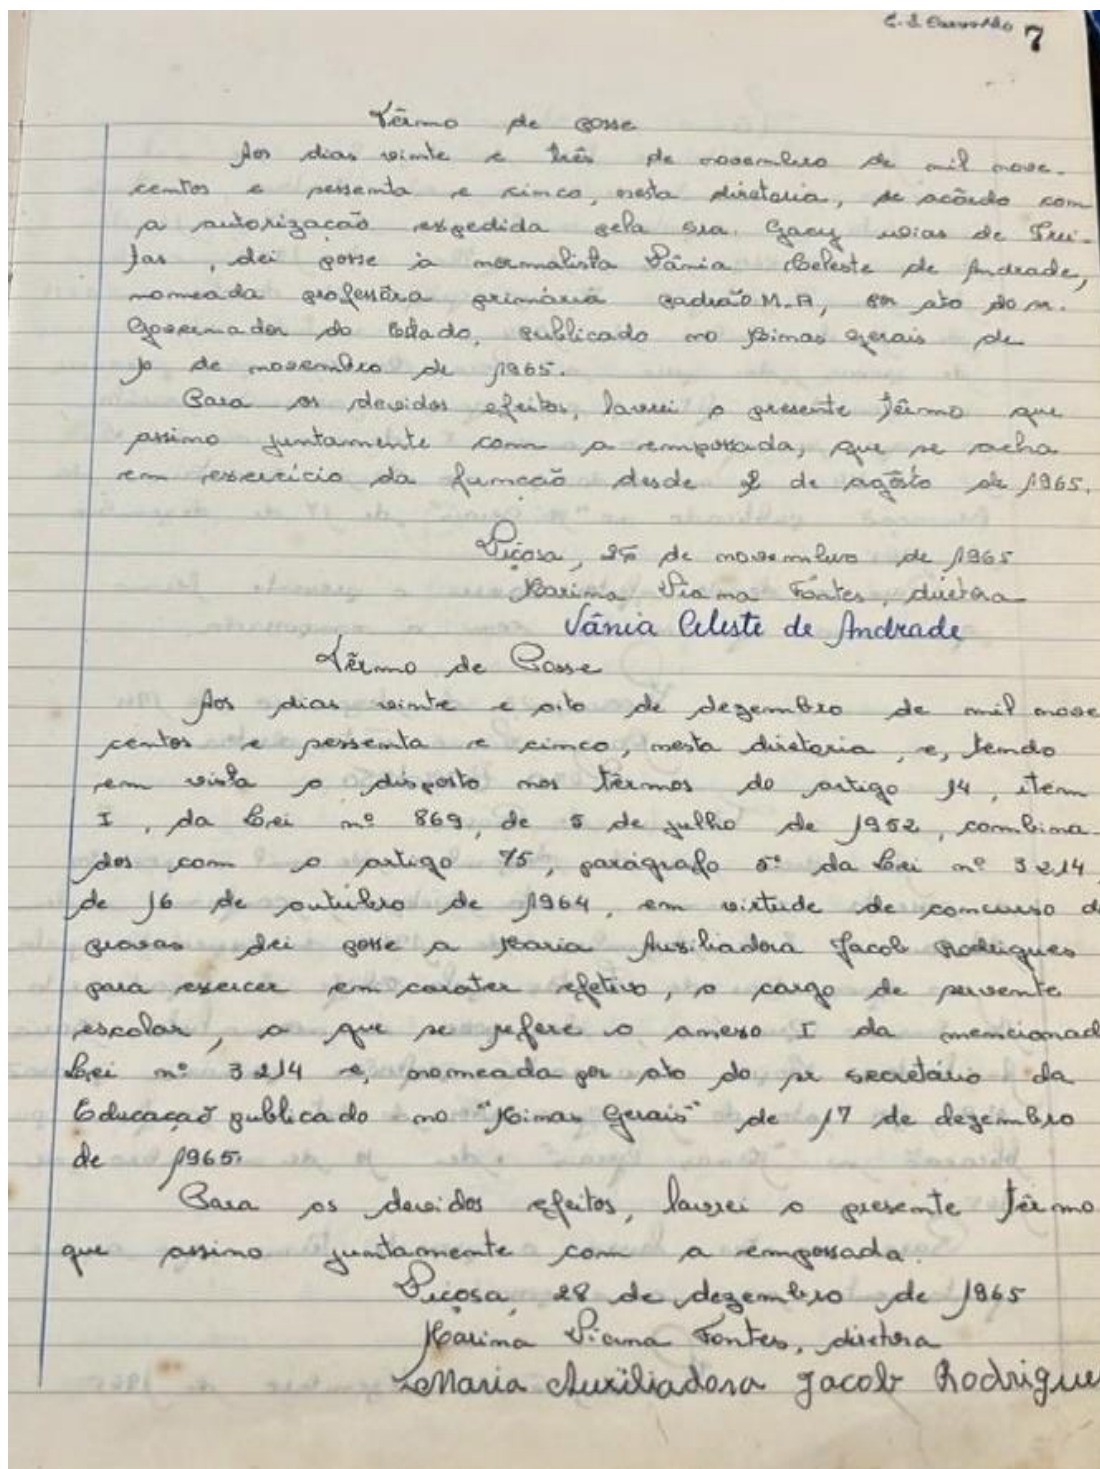 7
Têrmo de posse
Aos dias vinte e três de novembro de mil nove-
centos e sessenta e cinco, nesta diretoria, de acôrdo com
a autorização expedida pela sra. Gacy Dias de Frei-
tas, dei posse à normalista Vânia Celeste de Andrade,
nomeada professôra primária padrão M.A, por ato do sr.
Governador do Estado, publicado no Minas Gerais de
10 de novembro de 1965.
Para os devidos efeitos, lavrei o presente têrmo que
assino juntamente com a empossada, que se acha
em exercício da função desde 2 de agôsto de 1965.
Viçosa, de novembro de 1965
Marina Viana Fontes, diretora
Vânia Celeste de Andrade
Têrmo de Posse
Aos dias vinte e oito de dezembro de mil nove
centos e sessenta e cinco, nesta diretoria, e, tendo
em vista o disposto nos têrmos do artigo 14, item
I, da Lei nº 869, de 5 de julho de 1952, combina-
dos com o artigo 75, parágrafo 5º da Lei nº 3214,
de 16 de outúbro de 1964, em virtude de concurso d
provas dei posse a Maria Auxiliadora Jacob Rodrigues
para exercer em carater efetivo, o cargo de servente
escolar, a que se refere o anexo I da mencionad
Lei nº 3214 e, nomeada por ato do sr secretário da
Educação publicado no "Minas Gerais" de 17 de dezembro
de 1965.
Para os devidos efeitos, lavrei o presente têrmo
que assino juntamente com a empossada.
Viçosa, 28 de dezembro de 1965
Marina Viana Fontes, diretora
Maria Auxiliadora Jacob Rodrigue